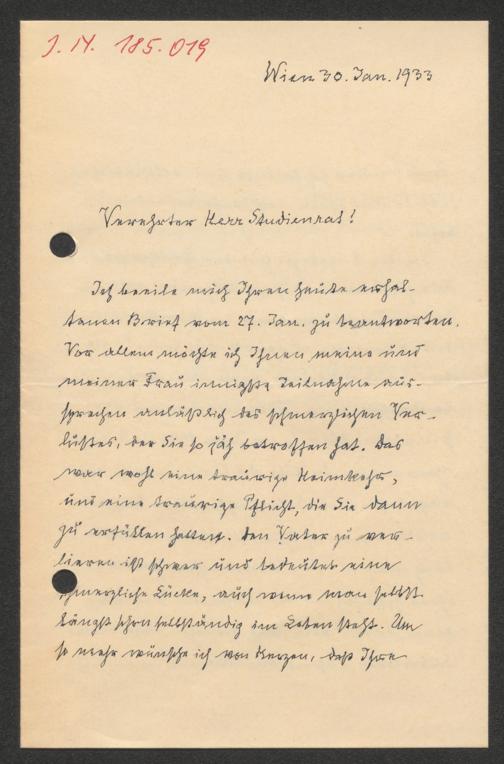 J. N. 185.019
Wien 30. Jan. 1933
Verehrter Herr Studienrat!
Ich beeile mich Ihren heute erhal-
tenen Brief vom 27. Jan. zu beantworten.
Vor allem möchte ich Ihnen meine und
meiner Frau innigste Teilnahme aus-
sprechen anläßlich des schmerzlichen Ver-
lustes, der Sie so jäh betroffen hat. Das
war wohl eine traurige Heimkehr,
und eine traurige Pflicht, die Sie dann
zu erfüllen hatten. Den Vater zu ver-
lieren ist schwer und bedeutet eine
schmerzliche Lücke, auch wenn man selbst
längst schon selbständig im Leben steht. Um
so mehr wünsche ich von Herzen, daß Ihre